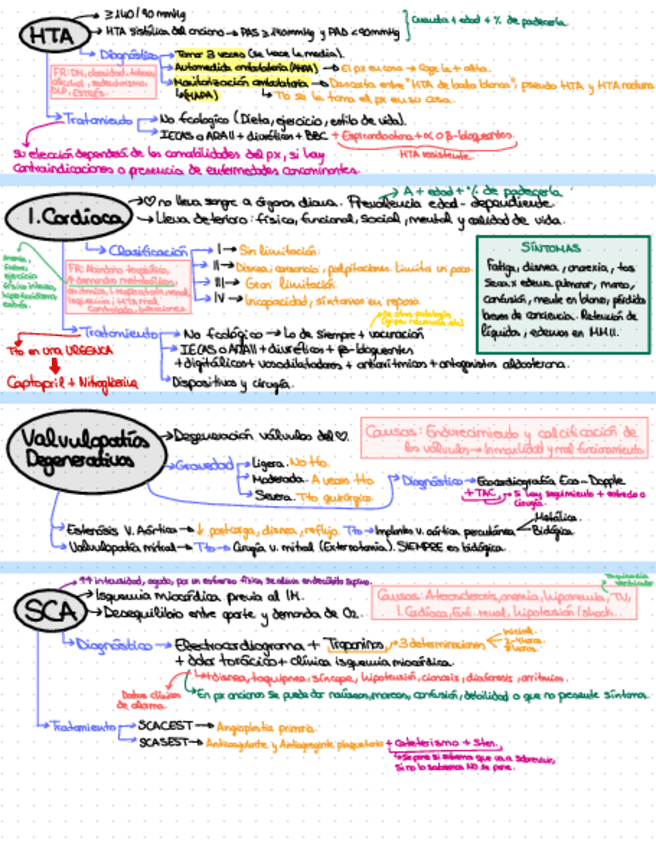 ≥140/90 mmHg
HTA
HTA sistólica del anciano → PAS ≥ 140mmHg y PAD < 90mmHg
Cuanta + edad + % de padecerla
Diagnóstico
Tomar 3 veces (se hace la media).
Automedida ambulatoria (AMPA) → El px en casa → Coge la + alta.
Monitorización ambulatoria → Descarta entre "HTA de bata blanca", pseudo HTA y HTA nocturna
(MAPA) → Tb se la toma el px en su casa.
FR: DM, obesidad, tabaco, alcohol, sedentarismo, DLP, ESTRÉS.
Tratamiento
No fcológico (Dieta, ejercicio, estilo de vida).
IECAS o ARAII + diuréticos + BBC + Espironolactona + α o β-bloqueantes.
HTA resistente.
Su elección dependerá de las comorbilidades del px, si hay
contraindicaciones o presencia de enfermedades concominantes.
A + edad + % de padecerla
I. Cardíaca
♡ no lleva sangre a órganos diana. Prevalencia edad-dependiente.
Lleva deterioro: físico, funcional, social, mental y calidad de vida.
Clasificación
I → Sin limitación.
II → Disnea, cansancio, palpitaciones. Limita un poco.
III → Gran limitación.
IV → Incapacidad, síntomas en reposo.
SÍNTOMAS
Fatiga, disnea, anorexia, tos
seca x edema pulmonar, mareo,
confusión, mente en blanco, pérdida
breves de conciencia. Retención de
líquidos, edemas en MMII.
Tratamiento
No fcológico → Lo de siempre + vacunación
IECAS o ARAII + diuréticos + β-bloqueantes
+ digitálicos + vasodilatadores + antiarrítmicos + antagonistas aldosterona.
Dispositivos y cirugía.
Tto en una URGENCIA
Captopril + Nitroglicerina
Valvulopatías
Degenerativas
Degeneración válvulas del ♡.
Causas: Endurecimiento y calcificación de
las válvulas → Inmovilidad y mal funcionamiento.
Gravedad
Ligera. No tto.
Moderada. A veces tto.
Severa. Tto quirúrgico.
Diagnóstico → Ecocardiografía Eco-Dopple
+ TAC, → si hay seguimiento + estudio o
cirugía.
Estenósis V. Aórtica → ↓ postcarga, disnea, reflujo. Tto → Implante v. aórtica percutánea
Metálica.
Biológica.
Valvulopatía mitral → Tto → Cirugía v. mitral (Esternotomía). SIEMPRE es biológica.
↑↑ intensidad, agudo, por un esfuerzo físico, se alivia en decúbito supino.
SCA
Isquemia miocárdica previa al IM.
Desequilibrio entre aporte y demanda de O2.
Taquicardia ventricular
Causas: Aterosclerosis, anemia, hipoxemia, TV,
I. Cardíaca, Enf. renal, hipotensión/shock...
Diagnóstico → Electrocardiograma + Troponinas → 3 determinaciones
Inicial.
+ dolor torácico + clínica isquemia miocárdica.
Datos clínicos de alarma.
disnea, taquipnea, síncope, hipotensión, cianosis, diaforesis, arritmias.
En px ancianos se puede dar náuseas, mareos, confusión, debilidad o que no presente síntomas.
Tratamiento
SCACEST → Angioplastia primaria.
SCASEST → Anticoagulante y Antiagregante plaquetario + Cateterismo + Sten.
Se pone si estima que va a sobrevivir,
Si no lo sabemos NO se pone.